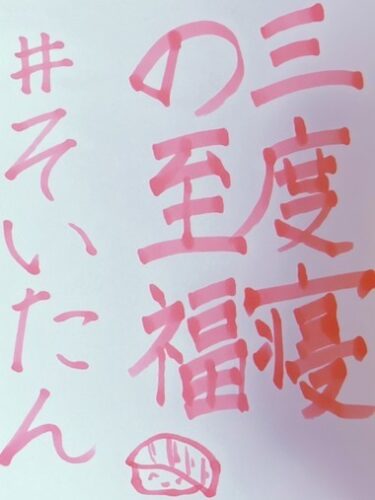 三度寝
の至福
#そいたん